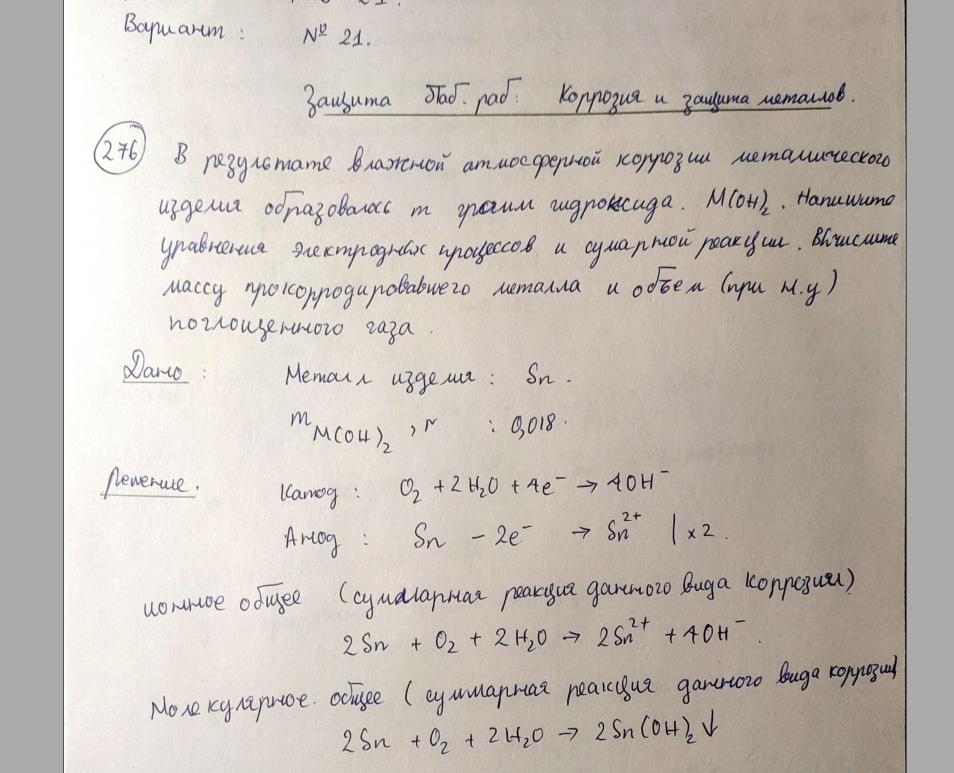 Вариант : № 21.
Защита Лаб. раб: Коррозия и защита металлов.
276 В результате влажной атмосферной коррозии металлического
изделия образовалось m грамм гидроксида. M(OH)₂. Напишите
уравнения электродных процессов и сумарной реакции. Вычислите
массу прокорродировавшего металла и объем (при н.у)
поглощенного газа.
Дано : Металл изделия : Sn.
m M(OH)₂, г : 0,018.
Решение. Катод : O₂ + 2H₂O + 4e⁻ → 4OH⁻
Анод : Sn - 2e⁻ → Sn²⁺ | x 2.
ионное общее (суммарная реакция данного вида коррозии)
2Sn + O₂ + 2H₂O → 2Sn²⁺ + 4OH⁻.
Молекулярное общее (суммарная реакция данного вида коррозии
2Sn + O₂ + 2H₂O → 2Sn(OH)₂↓